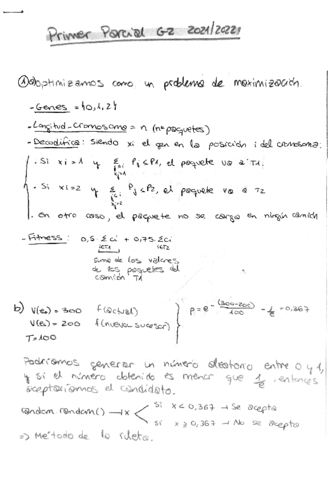 Primer Parcial G2 2021/2022
① a) optimizamos como un problema de maximización.
- Genes = {0,1,2}
- Longitud-Cromosoma = n (nº paquetes)
- Decodifica: Siendo xi el gen en la posición i del cromosoma:
· Si xi=1 y Σ Pj ≤ P1, el paquete va a T1.
· Si xi=2 y Σ Pj ≤ P2, el paquete va a T2
· En otro caso, el paquete no se carga en ningún camión
- Fitness: 0,5 · Σci + 0,75 Σci
i∈T1 i∈T2
suma de los valores
de los paquetes del
camión T1
b) V(ea) = 300 f(actual)
V(en) = 200 f(nueva sucesor)
T=100
p = e - (300-200)/100 = 1/e = 0,367
Podríamos generar un número aleatorio entre 0 y 1,
y si el número obtenido es menor que 1/e, entonces
aceptaríamos el candidato.
random.random() → x si x < 0,367 → Se acepta
si x ≥ 0,367 → No se acepta
=> Método de la ruleta.